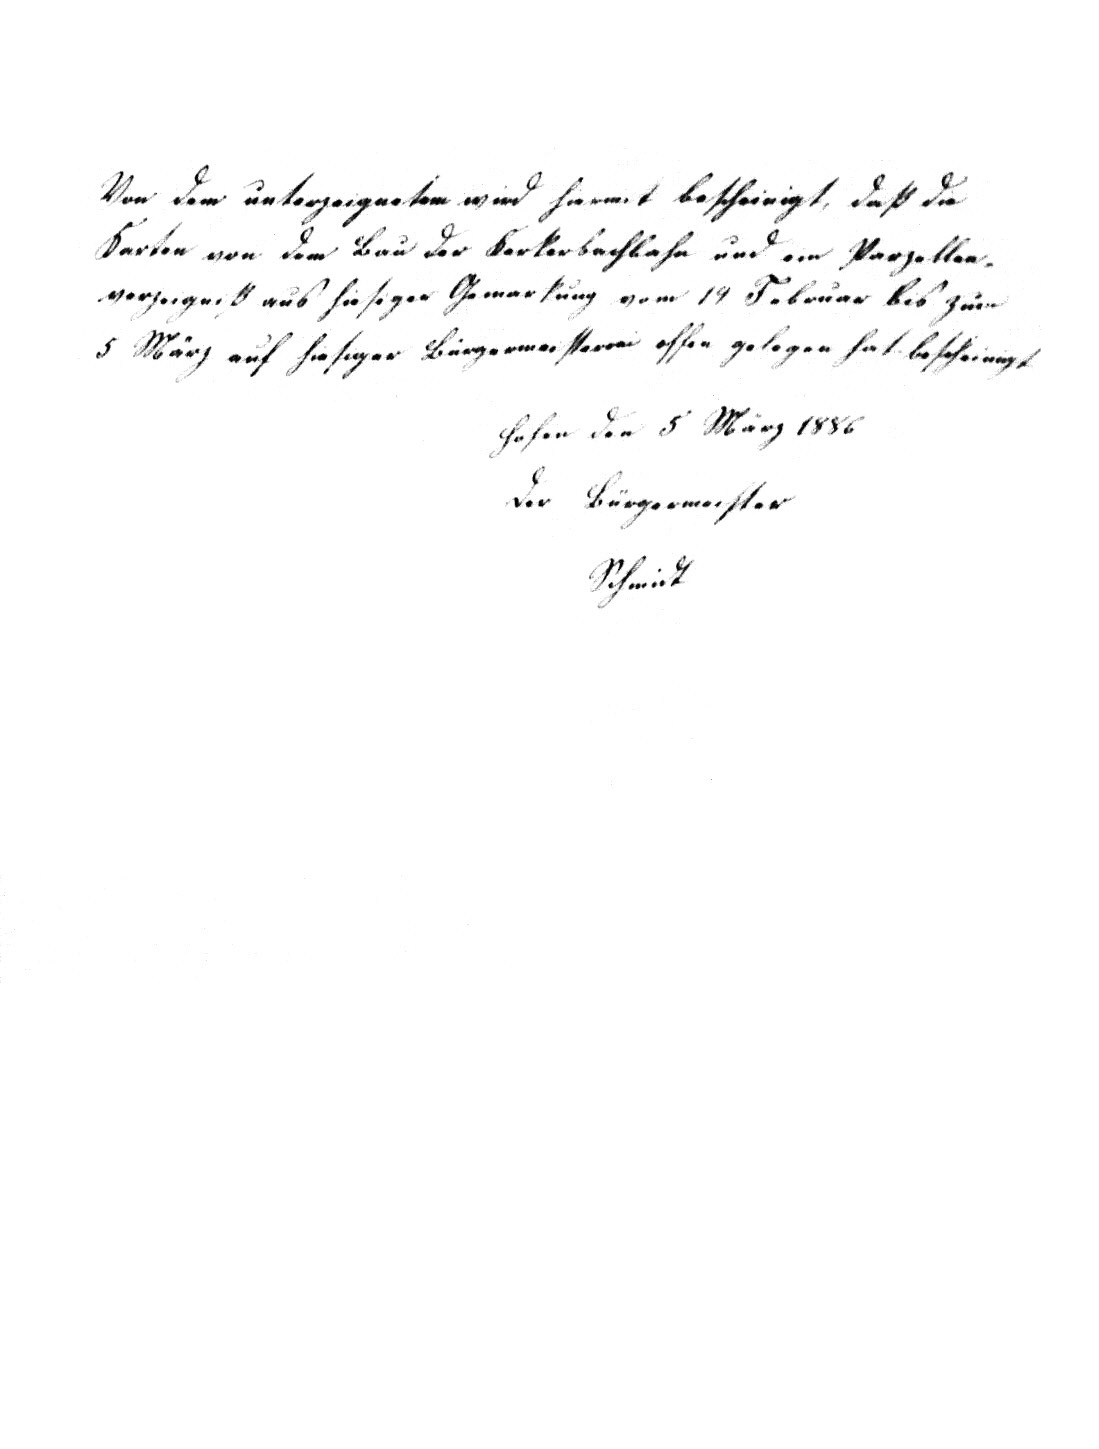 Von dem unterzeigneten wird hiermit bescheinigt, daß die
Karten von dem Bau der Kerkerbachbahn und ein Parzellen-
verzeigniß aus hiesiger Gemarkung vom 19 Februar bis zum
5 März auf hiesiger Bürgermeisterei offen gelegen hat bescheinigt
Hofen den 5 März 1886
Der Bürgermeister
Schmidt